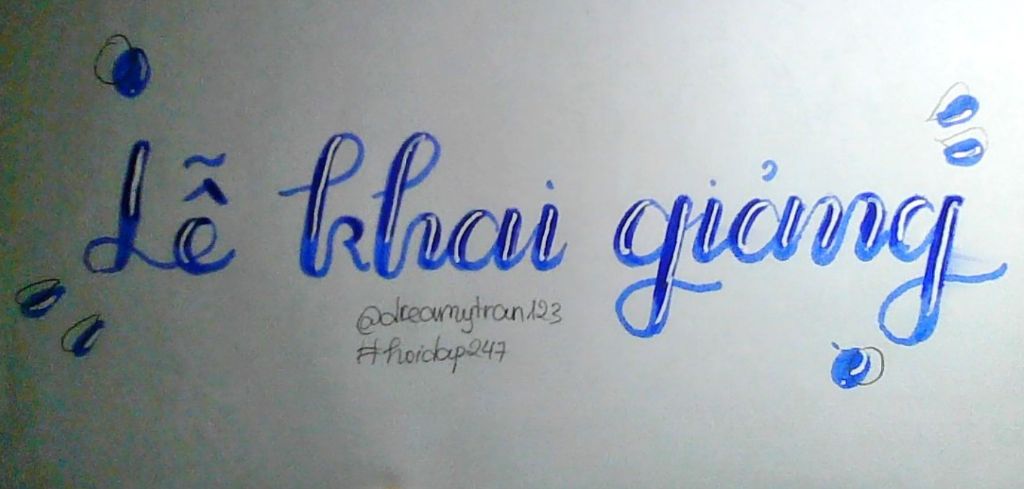 Lễ khai giảng
@dreamytran123
#hoidap247